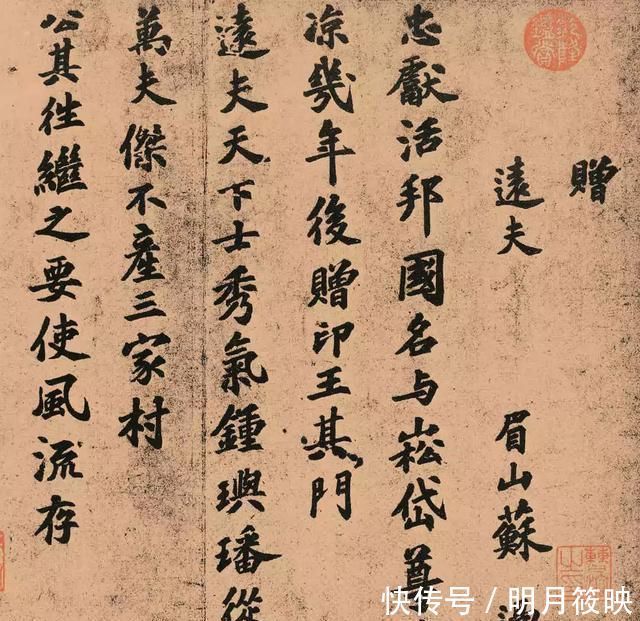 贈
遠夫 眉山蘇
忠獻活邦國名与崧岱尊
凉幾年後贈印王其門
遠夫天下士秀氣鍾璵璠從
萬夫傑不產三家村
公其徃繼之要使風流存
快传号 / 明月筱映